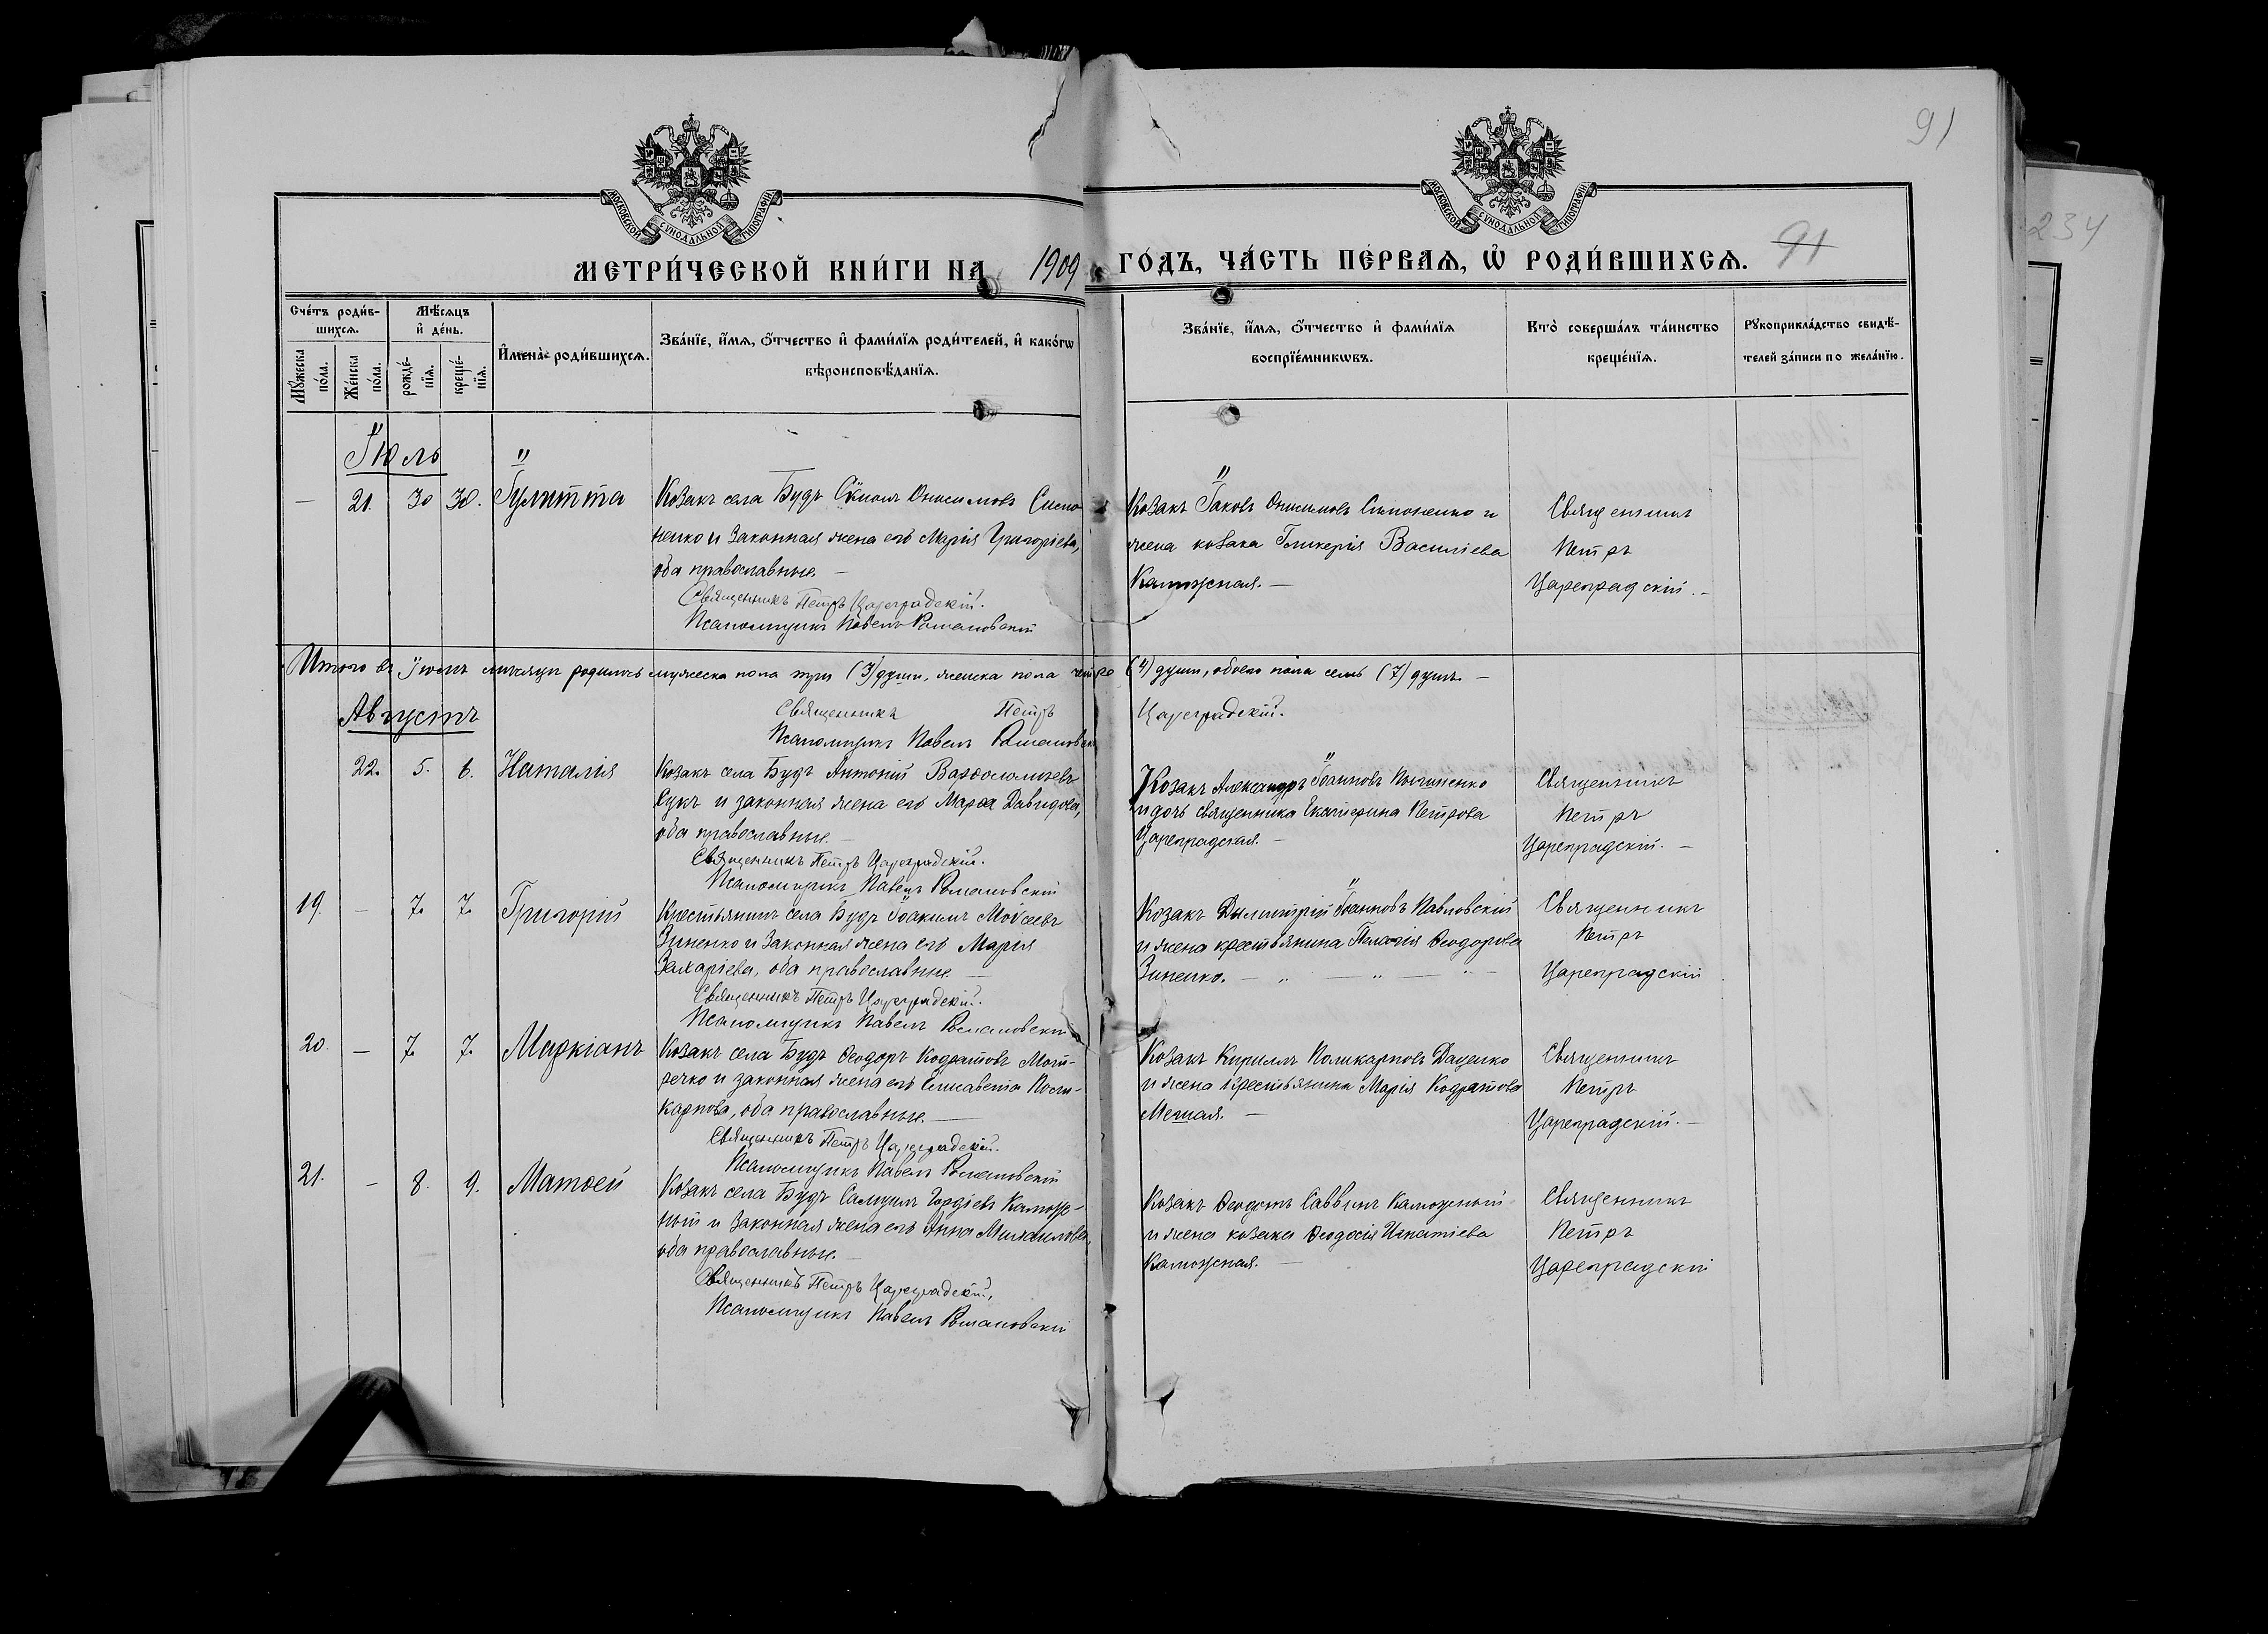 91
91
234
МОСКОВСКОЙ СѴНОДАЛЬНОЙ ТИПОГРАФІИ
МОСКОВСКОЙ СѴНОДАЛЬНОЙ ТИПОГРАФІИ
МЕТРИ́ЧЕСКОЙ КНИ́ГИ НА 1909 ГО́ДЪ, ЧА́СТЬ ПЕ́РВАѦ, Ѽ РОДИ́ВШИХСѦ.
Сче́тъ роди́в-
шихсѧ.
Мꙋ́жеска
по́ла.
Же́нска
по́ла.
Мѣ́сѧцъ
и҆ де́нь.
рожде́-
нїѧ.
креще́-
нїѧ.
И҆мена̀ роди́вшихсѧ.
Зва́нїе, и҆́мѧ, ѻ҆́тчество и҆ фами́лїѧ роди́телей, и҆ како́гѡ
вѣроисповѣ́данїѧ.
Зва́нїе, и҆́мѧ, ѻ҆́тчество и҆ фами́лїѧ
воспрїе́мникѡвъ.
Кто̀ соверша́лъ та́инство
креще́нїѧ.
Рꙋкоприкла́дство свидѣ́-
телей за́писи по жела́нїю.
Іюль
— 21. 30 30. Іулитта
Козакъ села Будъ Симонъ Онисимовъ Симо-
ненко и законная жена его Марія Григоріева,
оба православные. —
Священникъ Петръ Цареградскій.
Псаломщикъ Павелъ Романовскій
Козакъ Іаковъ Онисимовъ Симоненко и
жена козака Гликерія Василіева
Каможная. —
Священникъ
Петръ
Цареградскій. —
Итого въ Іюлѣ мѣсяцѣ родилось мужеска пола три (3) души, женска пола четыре (4) души, обоего пола семь (7) душъ. —
Священникъ Петръ Цареградскій.
Псаломщикъ Павелъ Романовскій
Августъ
22. 5. 6. Наталія
Козакъ села Будъ Антоній Варѳоломеевъ
Сукъ и законная жена его Марѳа Давидова,
оба православные. —
Священникъ Петръ Цареградскій.
Псаломщикъ Павелъ Романовскій
Козакъ Александръ Іоанновъ
и дочь священника Екатерина Петрова
Цареградская. —
Священникъ
Петръ
Цареградскій. —
19. — 7. 7. Григорій
Крестьянинъ села Будъ Іоакимъ Моѵсеевъ
Зиненко и законная жена его Марія
Захаріева, оба православные. —
Священникъ Петръ Цареградскій.
Псаломщикъ Павелъ Романовскій
Козакъ Димитрій Іоанновъ Павловскій
и жена крестьянина Пелагія Ѳеодорова
Зиненко. — „ — „ — „ —
Священникъ
Петръ
Цареградскій
20. — 7. 7. Маркіанъ
Козакъ села Будъ Ѳеодоръ Кодратовъ Мот-
речко и законная жена его Елисавета Поли-
карпова, оба православные. —
Священникъ Петръ Цареградскій.
Псаломщикъ Павелъ Романовскій
Козакъ Кириллъ Поликарповъ Даценко
и жена крестьянина Марія Кодратова
Священникъ
Петръ
Цареградскій. —
21. — 8. 9. Матѳей
Козакъ села Будъ Самуилъ Гордіевъ Камож-
ный и законная жена его Анна Михаилова,
оба православные. —
Священникъ Петръ Цареградскій,
Псаломщикъ Павелъ Романовскій
Козакъ Ѳеодотъ Саввинъ Каможный
и жена козака Ѳеодосія Игнатіева
Каможная. —
Священникъ
Петръ
Цареградскій